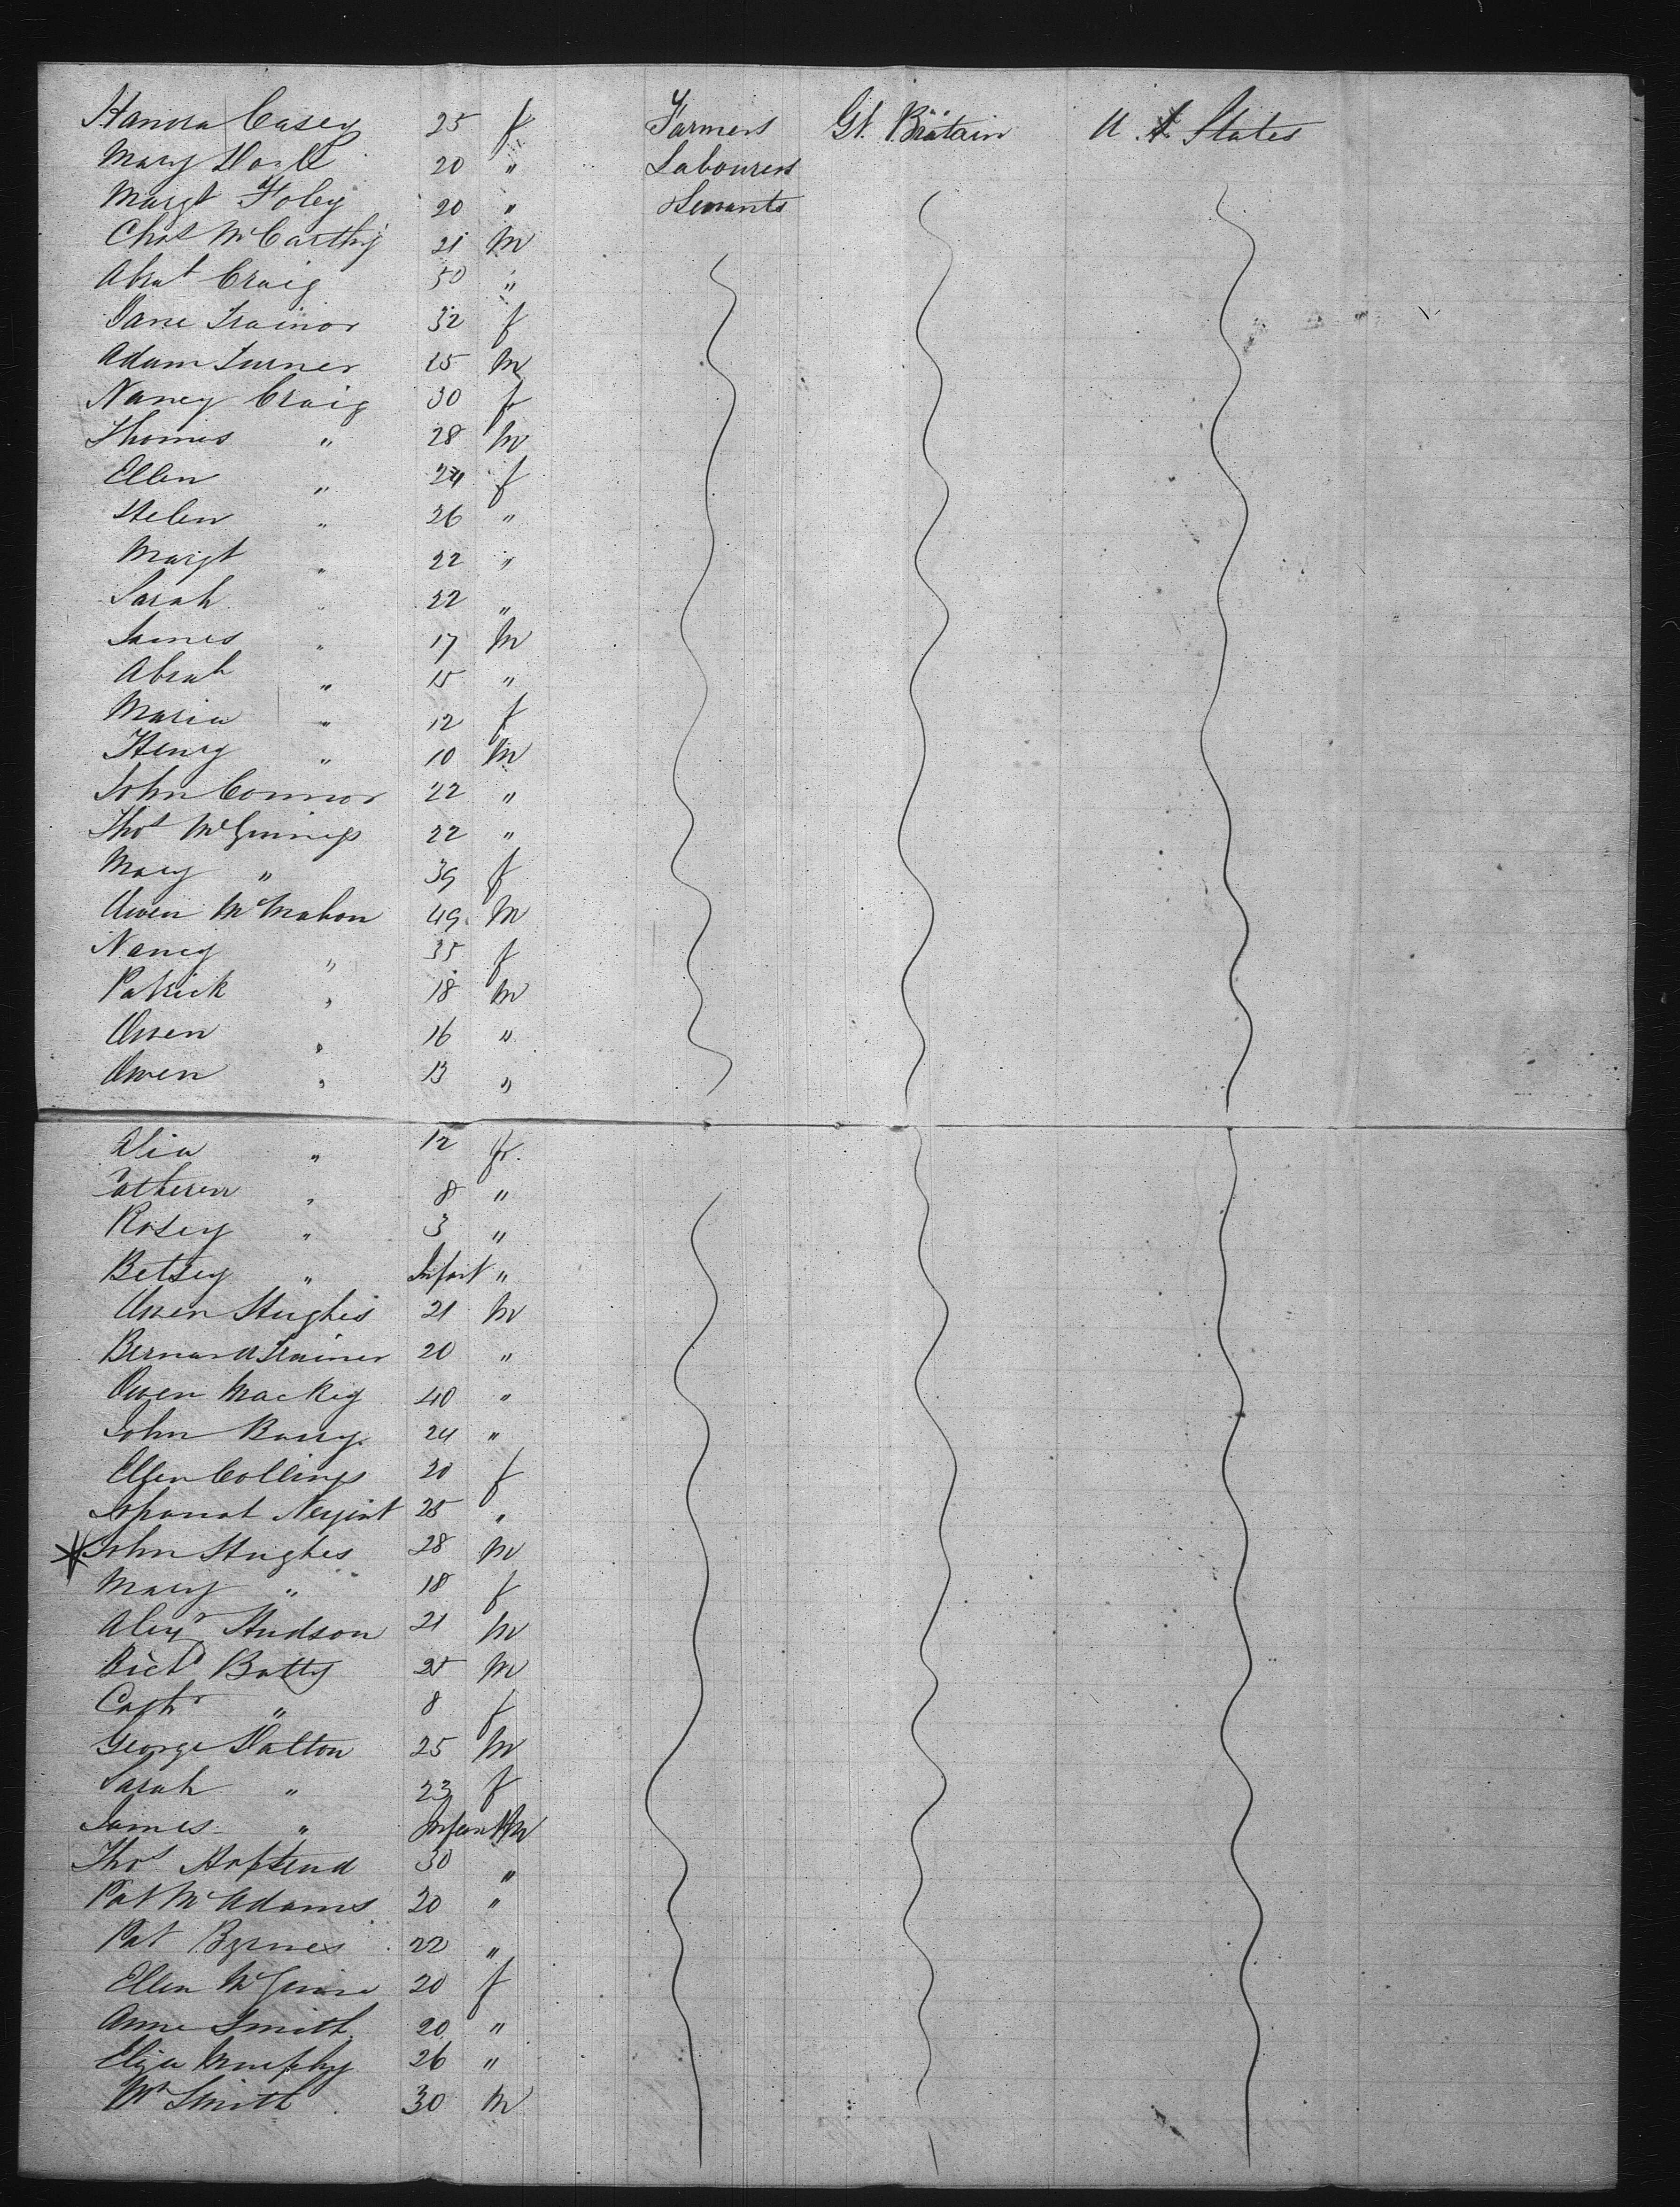 Hanora Casey 25 f Farmers Gt. Britain U. S. States
Mary 20 " Labourers
Margt Foley 20 " Servants
Chas McCarthy 21 M
Abrat Craig 50 "
Jane Trainor 32 f
Adam Turner 15 M
Nancy Craig 30 f
Thomas " 28 M
Ellen " 24 f
Helen " 26 "
Margt " 22 "
Sarah " 22 "
James " 17 M
Abrah " 15 "
Maria " 12 f
Henry " 10 M
John Connor 22 "
Thos McGinniss 22 "
Mary " 39 f
Owen McMahon 49 M
Nancy " 35 f
Patrick " 18 M
Owen " 16 "
Owen " 13 "
" 12 f
Catheren " 8 "
Rosey " 3 "
Betsey " Infant "
Owen Hughes 21 M
Bernard Trainer 20 "
Owen Mackey 40 "
John Barry 24 "
Ellen Collings 20 f
25 "
John Hughes 28 M
Mary " 18 f
Alexr Hudson 21 M
Richd Batty 25 M
" 8 f
George Dalton 25 M
Sarah " 23 f
James " Infant M
Thos 30 "
Pat McAdams 20 "
Pat Byrnes 22 "
Ellen 20 f
Anne Smith 20 "
Eliza Murphy 26 "
Wm Smith 30 M